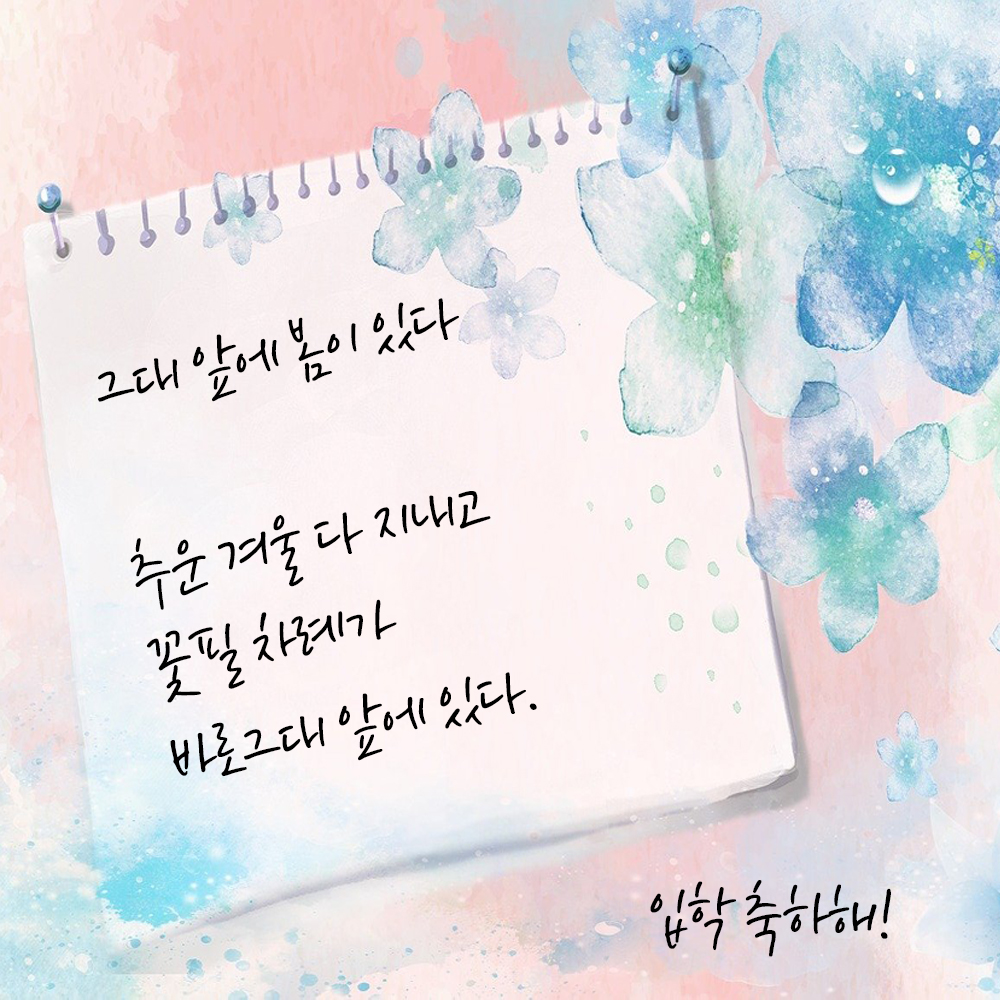 그대 앞에 봄이 있다
추운 겨울 다 지내고
꽃필 차례가
바로그대 앞에 있다.
입학 축하해!